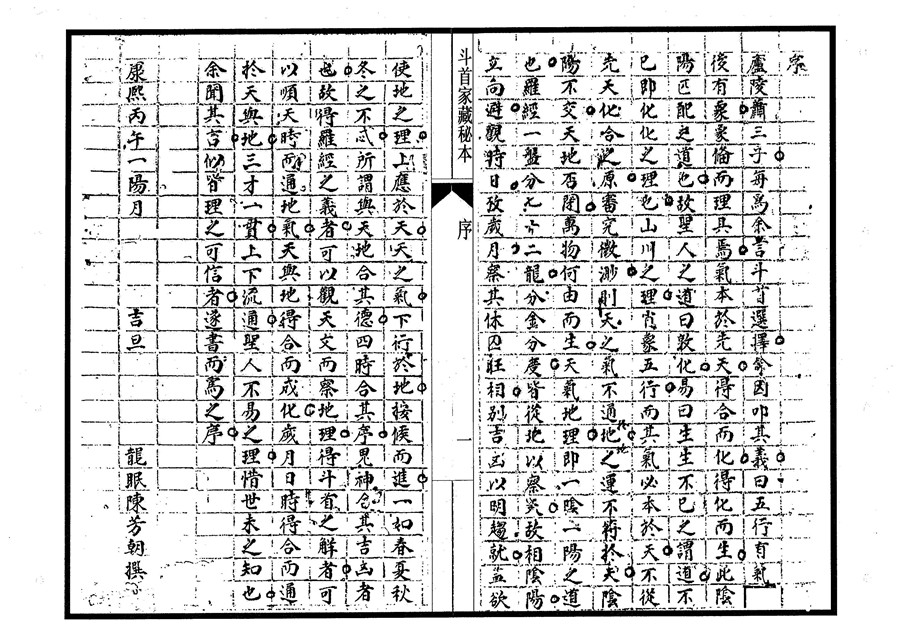 序
廬陵蕭三子每爲余言斗首選擇余因叩其義曰五行有氣
俊有象象偹而理具焉氣本於先天得合而化得化而生此陰
陽匹配之道也故聖人之道曰敦化易曰生生不已之謂道不
已即化化之理也山川之理肖象五行而其氣必本於天不從
先天化合之原審究微渺則天之氣不通地之運不符於天陰
陽不交天地否閉萬物何由而生天氣地理即一陰一陽之道
也羅經一盤分七十二龍分金分度皆從地以察炁故相陰陽
立向避觀時日攷歲月察其休囚旺相別吉凶以明趨就盖欲
斗首家藏秘本
序
一
使地之理上應於天天之氣下衍於地按候而進一如春夏秋
冬之不忒所謂與天地合其德四時合其序鬼神合其吉凶者
也故得羅經之義者可以觀天文而察地理得斗首之解者可
以順天時而通地氣天與地得合而成化歲月日時得合而通
於天與地三才一貫上下流通聖人不易之理惜世未之知也
余聞其言似皆理之可信者遂書而爲之序
康熙丙午一陽月 吉旦 龍眠陳芳朝撰